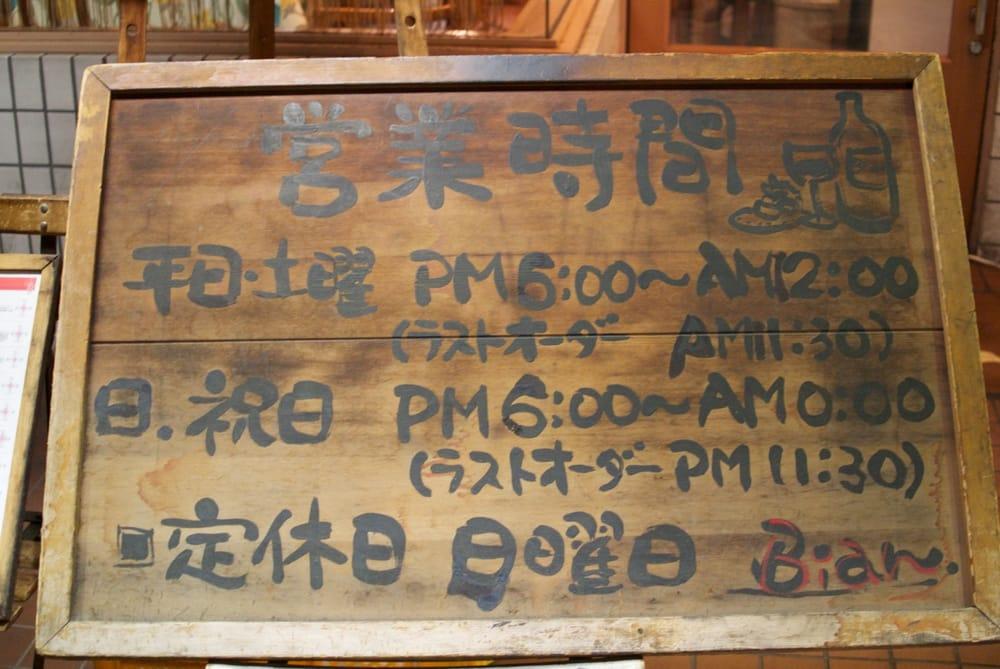 営業時間
平日・土曜 PM6:00～AM12:00
(ラストオーダー AM11:30)
日.祝日 PM6:00～AM0:00
(ラストオーダーPM11:30)
定休日 日曜日 Bian.